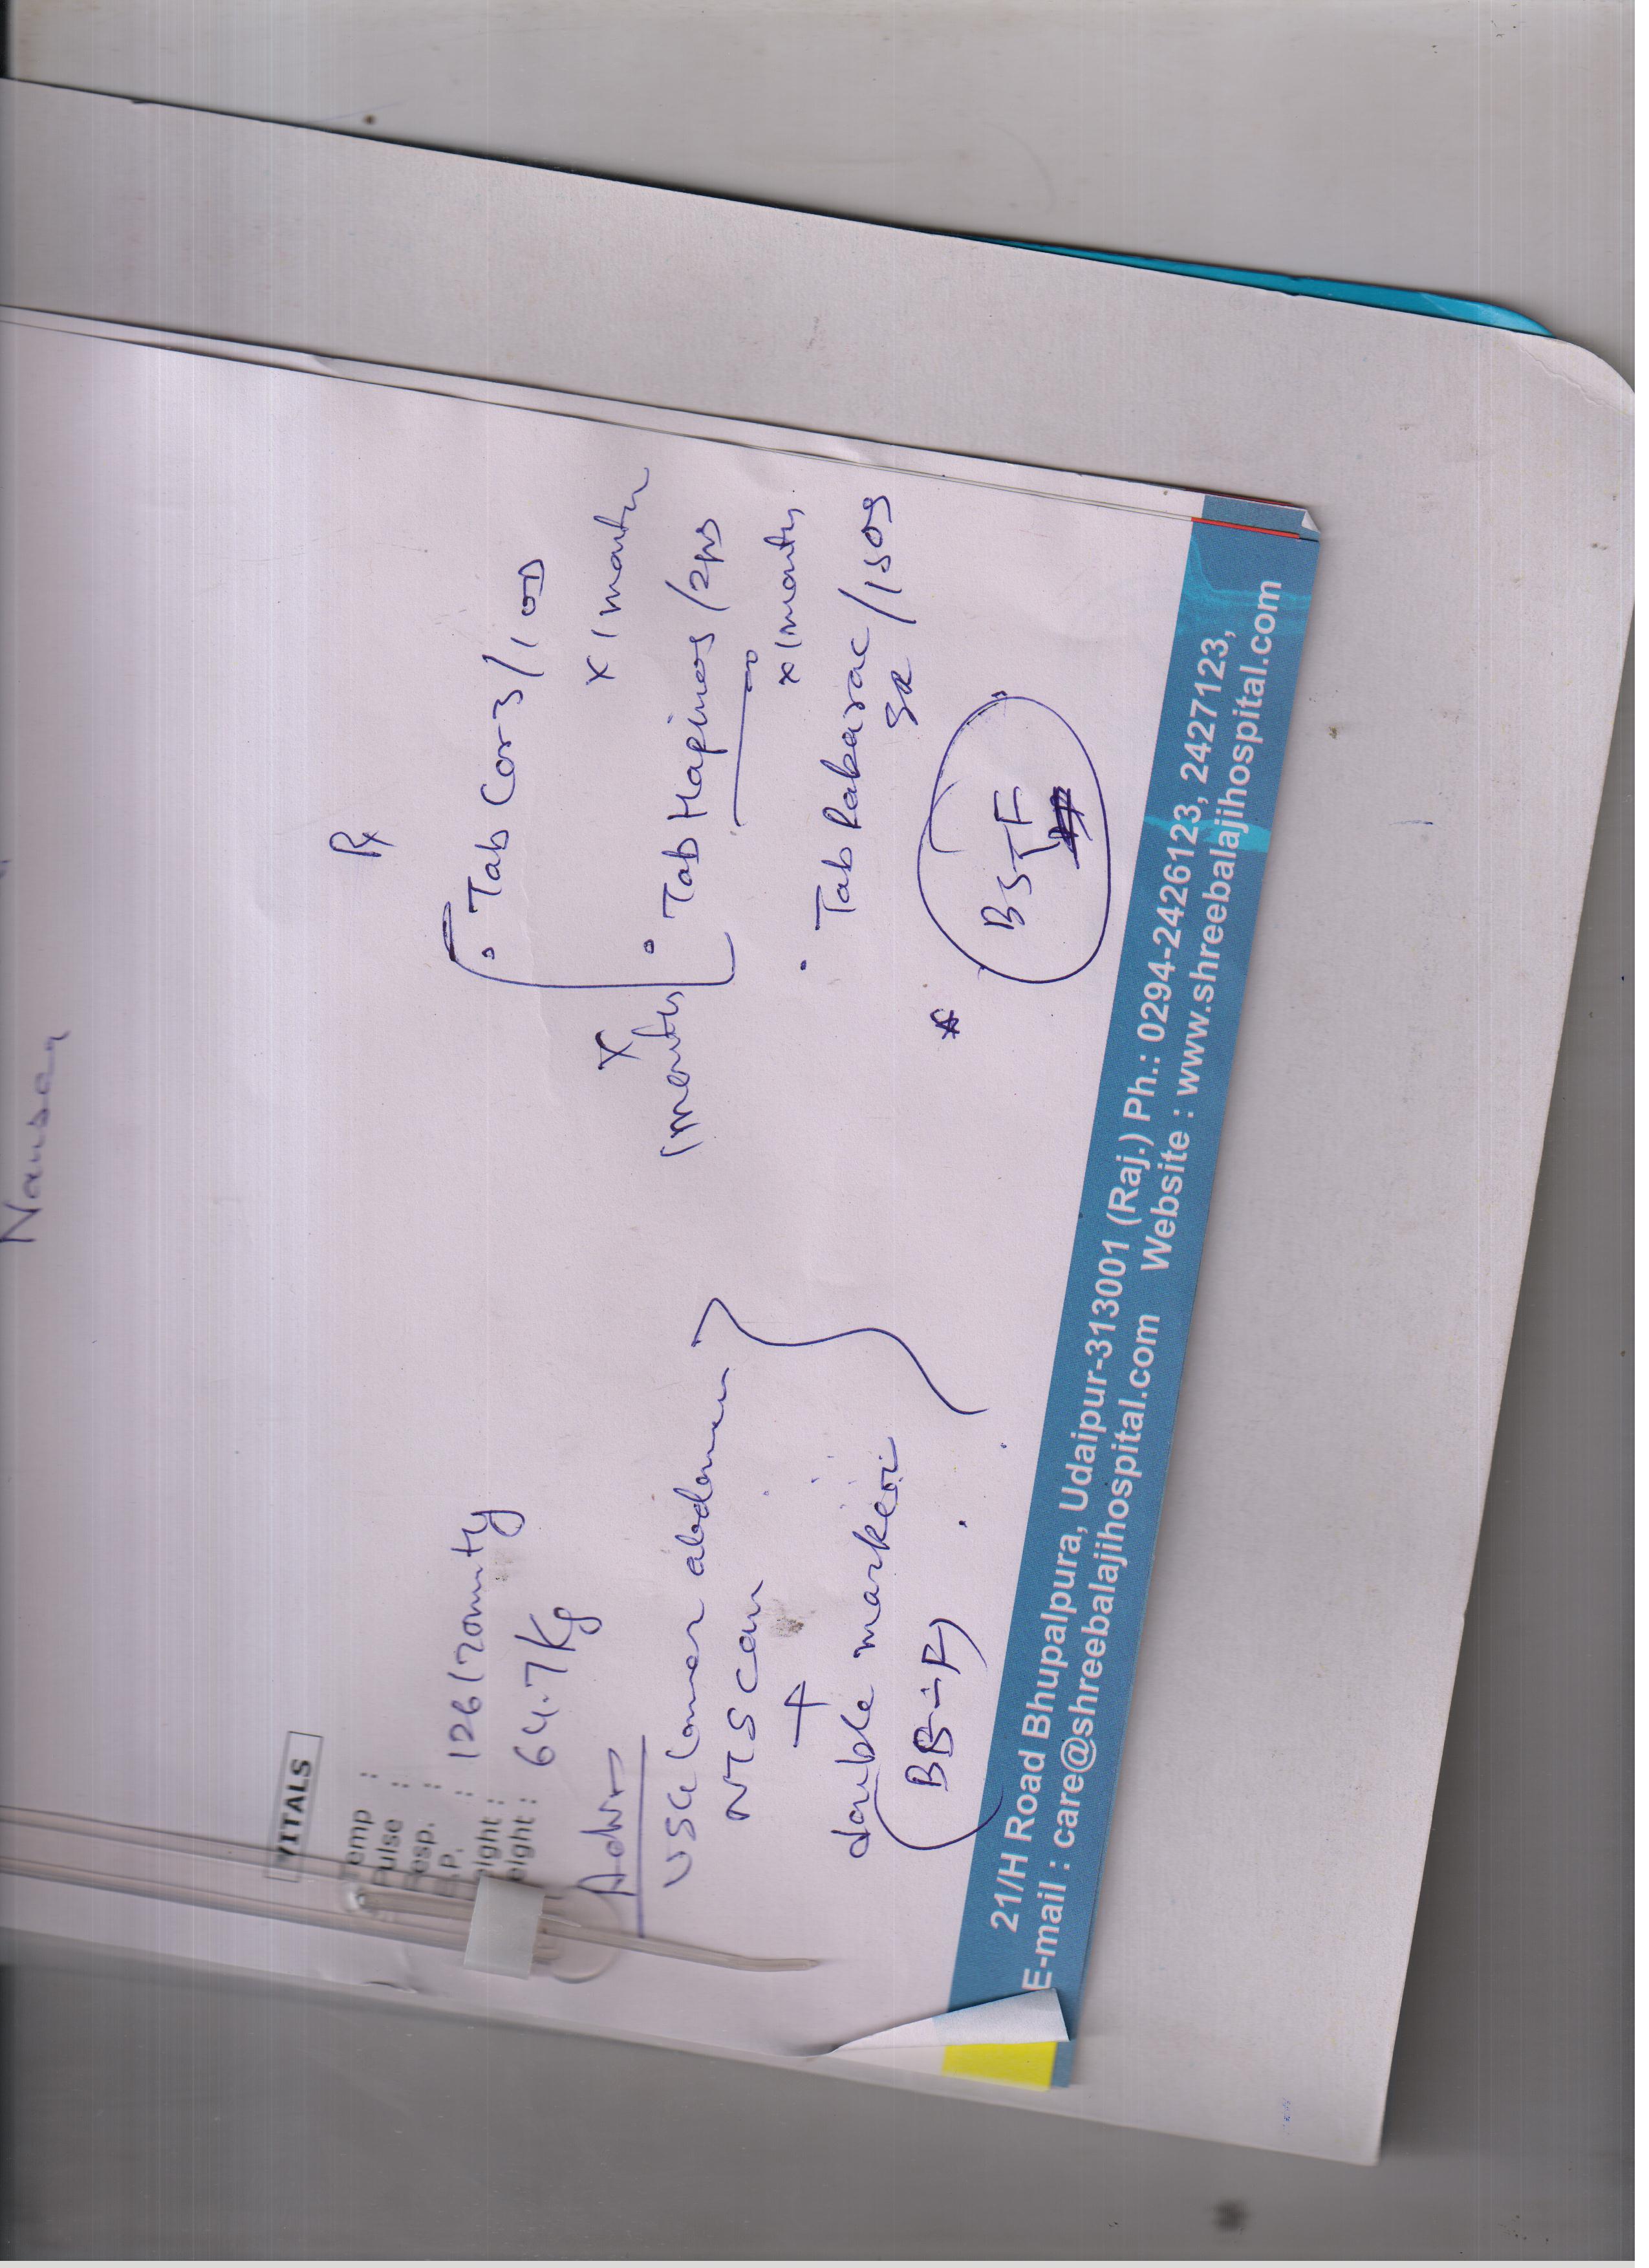 Nausea
VITALS
Temp :
Pulse :
Resp. :
B.P. : 126/70mmHg
eight : 64.7 Kg
eight :
Adv
USG lower abdomen
NTSCan
+
double marker
Rx
Tab Cor3/1 OD
x 1 month
x
1month
Tab
x 1month
Tab
SR
21/H Road Bhupalpura, Udaipur-313001 (Raj.) Ph.: 0294-2426123, 2427123,
E-mail : care@shreebalajihospital.com Website : www.shreebalajihospital.com